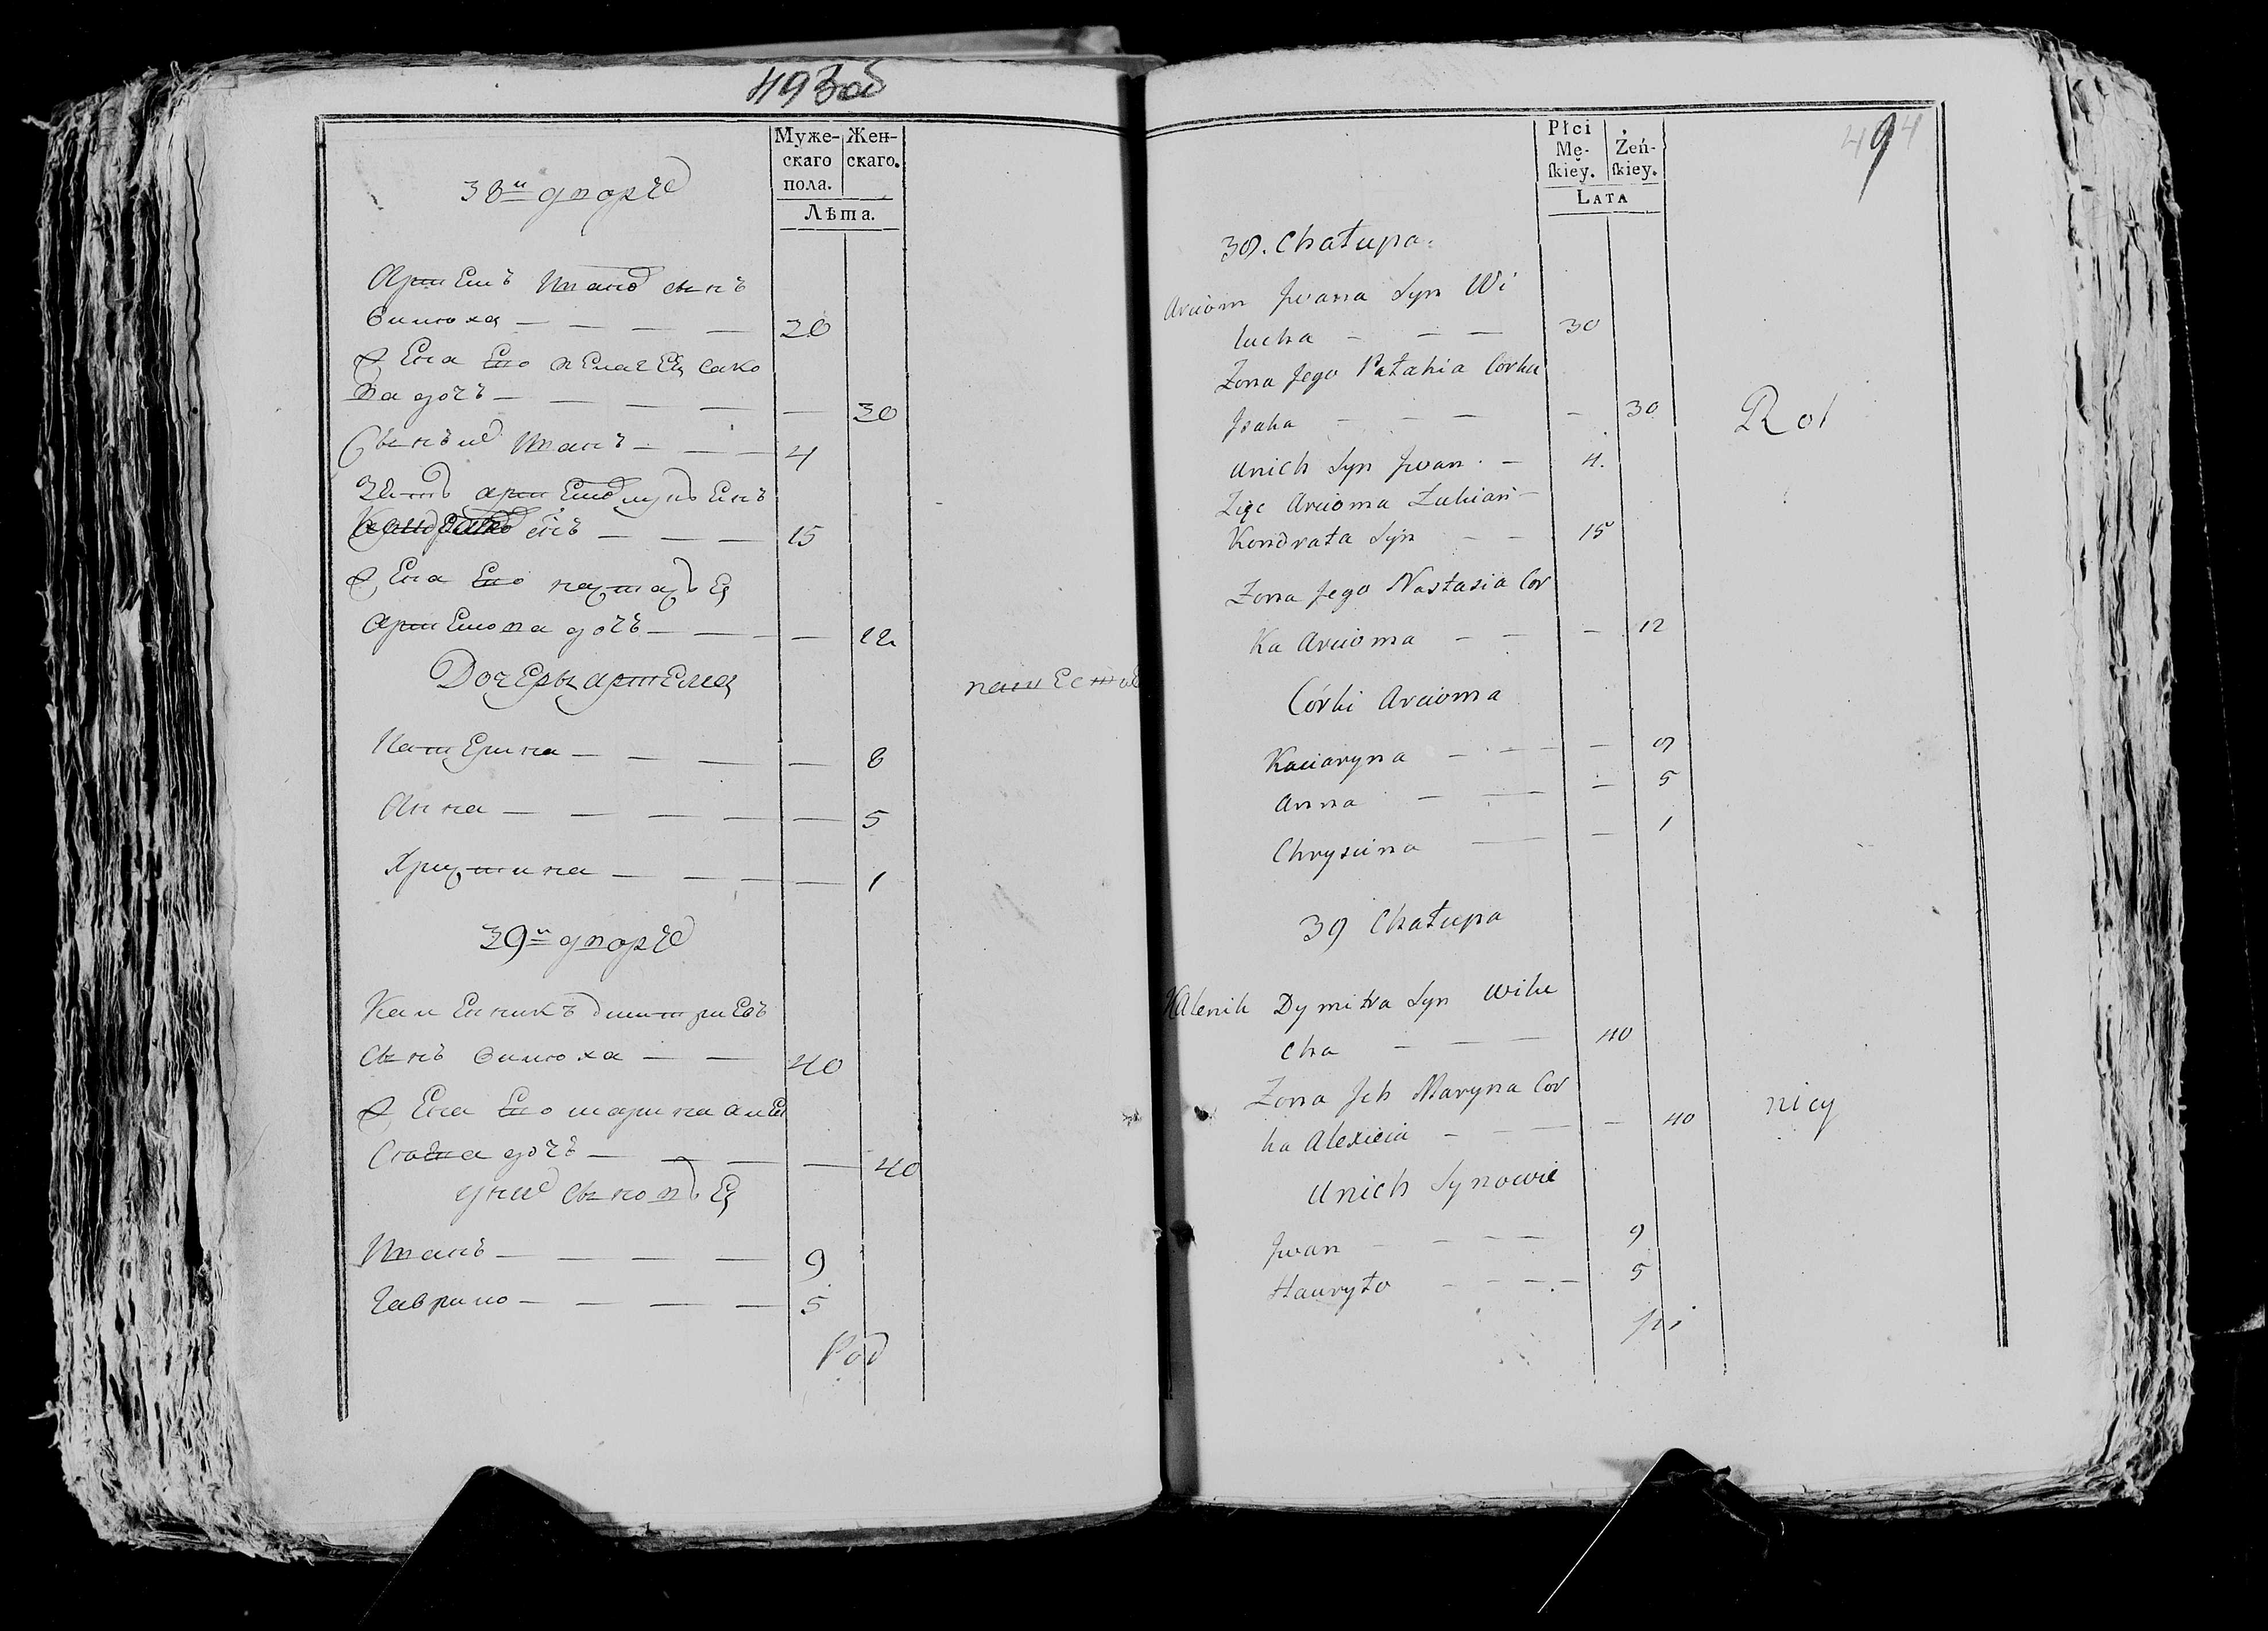 493 об
Муже-
скаго
пола.
Жен-
скаго.
Лѣта.
38й дворъ
Артемъ Иванов сынъ
Вилюха — — — — 20
Жена Его пелагея сако
ва дочъ — — — — — 30
Сынъ их Иванъ — — — 4
Зять артема лукьянъ
Кондратов снъ — — — 15
Жена Его настасья
Артемова дочъ — — — — 12
Дочеры артема
Катерина — — — — — 8
Анна — — — — — — 5
Христина — — — — — 1
39й дворъ
Каленикъ дмитриевъ
Сынъ Вилюха — — 40
Жена Его марина алек
сѣева дочъ — — — — 40
у них сыновья
Иванъ — — — — — 9
Гаврило — — — — 5
494
Płci
Mę-
ſkiey.
Żeń-
ſkiey.
LATA
38. Chałupa.
Arciom Jwana Syn Wi
lucha — — — 30
Zona Jego Pałahia Corka
Jsaka — — — — 30
Rol
Unich Syn Jwan. — 4.
Zięc Arcioma Łukian —
Kondrata Syn — — 15
Zona Jego Nastasia Cor
Ka Arcioma — — — 12
Córki Arcioma
Kaciaryna — — — — 8
Anna — — — 5
Chryscina — — 1
39 Chałupa
Kalenik Dymitra Syn Wilu
cha — — — 40
Zona Jch Maryna Cor
ka Alexieia — — — — 40
nicy
Unich Synowie
Jwan — — — — 9
Hauryło — — — — 5